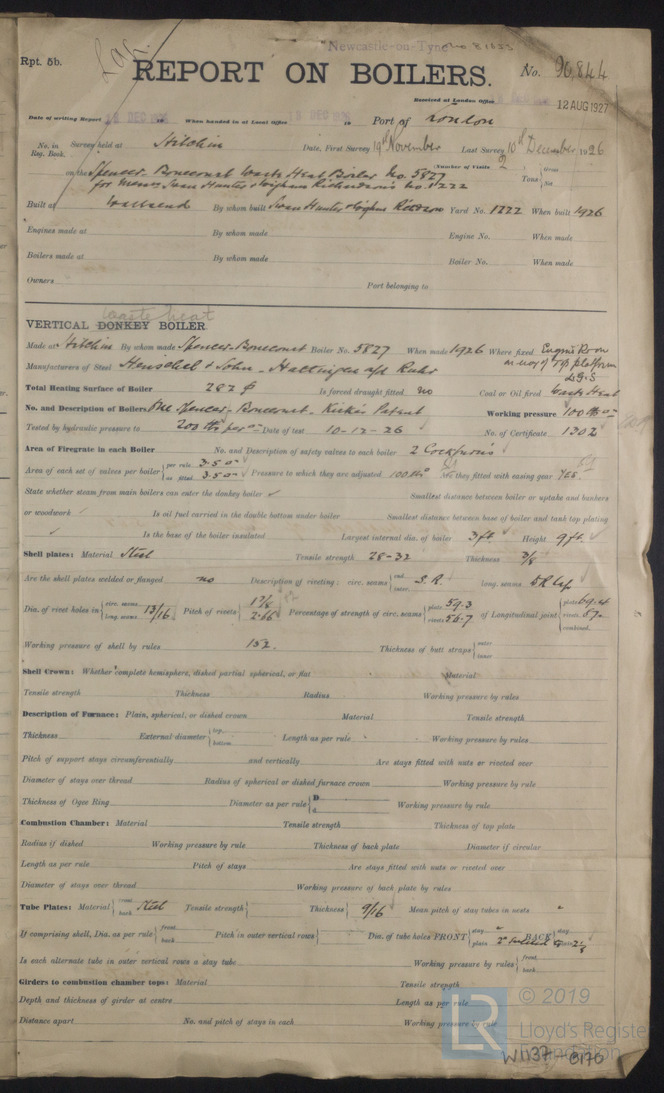 Newcastle-on-Tyne No 81623
Rpt. 5b.
REPORT ON BOILERS.
No. 96,844
Received at London Office
12 AUG 1927
Date of writing Report DEC 1926 19 When handed in at Local Office 13 DEC 1926 19 Port of London
No. in Reg. Book. Survey held at Hitchin Date, First Survey 19th November Last Survey 10th December 1926
(Number of Visits 2
on the Spencer-Bonecourt Waste Heat Boiler No. 5827
for Messrs Swan Hunter & Wigham Richardson's No. 1222
Tons { Gross Net
Built at Wallsend By whom built Swan Hunter & Wigham Richardson Yard No. 1222 When built 1926
Engines made at By whom made Engine No. When made
Boilers made at By whom made Boiler No. When made
Owners Port belonging to
waste heat
VERTICAL DONKEY BOILER.
Made at Hitchin By whom made Spencer-Bonecourt Boiler No. 5827 When made 1926 Where fixed Engine Room
Manufacturers of Steel Henschel & Sohn - Hattingen a/d Ruhr
Total Heating Surface of Boiler 282 Is forced draught fitted no Coal or Oil fired Waste Heat
No. and Description of Boilers One Spencer-Bonecourt-Kirke's Patent Working pressure 100 lbs
Tested by hydraulic pressure to 200 lbs per Date of test 10-12-26 No. of Certificate 1302
Area of Firegrate in each Boiler No. and Description of safety valves to each boiler 2 Cockburns
Area of each set of valves per boiler { per rule 3.50 as fitted 3.50 Pressure to which they are adjusted 100 lbs Are they fitted with easing gear Yes.
State whether steam from main boilers can enter the donkey boiler ✓ Smallest distance between boiler or uptake and bunkers
or woodwork Is oil fuel carried in the double bottom under boiler Smallest distance between base of boiler and tank top plating
✓ Is the base of the boiler insulated Largest internal dia. of boiler 3 ft Height 9 ft.
Shell plates: Material Steel Tensile strength 28-32 Thickness 3/8
Are the shell plates welded or flanged no Description of riveting: circ. seams { end inter. S.R. long. seams D.R. lap
Dia. of rivet holes in { circ. seams long. seams 13/16 Pitch of rivets { 1 7/8 2.66 Percentage of strength of circ. seams { plate 59.3 rivets 56.7 of Longitudinal joint { plate 69.4 rivets 57. combined
Working pressure of shell by rules 152. Thickness of butt straps { outer inner
Shell Crown: Whether complete hemisphere, dished partial spherical, or flat Material
Tensile strength Thickness Radius Working pressure by rules
Description of Furnace: Plain, spherical, or dished crown Material Tensile strength
Thickness External diameter { top bottom Length as per rule Working pressure by rules
Pitch of support stays circumferentially and vertically Are stays fitted with nuts or riveted over
Diameter of stays over thread Radius of spherical or dished furnace crown Working pressure by rule
Thickness of Ogee Ring Diameter as per rule { D d Working pressure by rule
Combustion Chamber: Material Tensile strength Thickness of top plate
Radius if dished Working pressure by rule Thickness of back plate Diameter if circular
Length as per rule Pitch of stays Are stays fitted with nuts or riveted over
Diameter of stays over thread Working pressure of back plate by rules
Tube Plates: Material { front back Steel Tensile strength { Thickness { 9/16 Mean pitch of stay tubes in nests
If comprising shell, Dia. as per rule { front back Pitch in outer vertical rows { Dia. of tube holes FRONT { stay plain BACK { stay plain
Is each alternate tube in outer vertical rows a stay tube Working pressure by rules { front back
Girders to combustion chamber tops: Material Tensile strength
Depth and thickness of girder at centre Length as per rule
Distance apart No. and pitch of stays in each Working pressure by rule
LR © 2019
Lloyd's Register
Foundation
W1137-0170